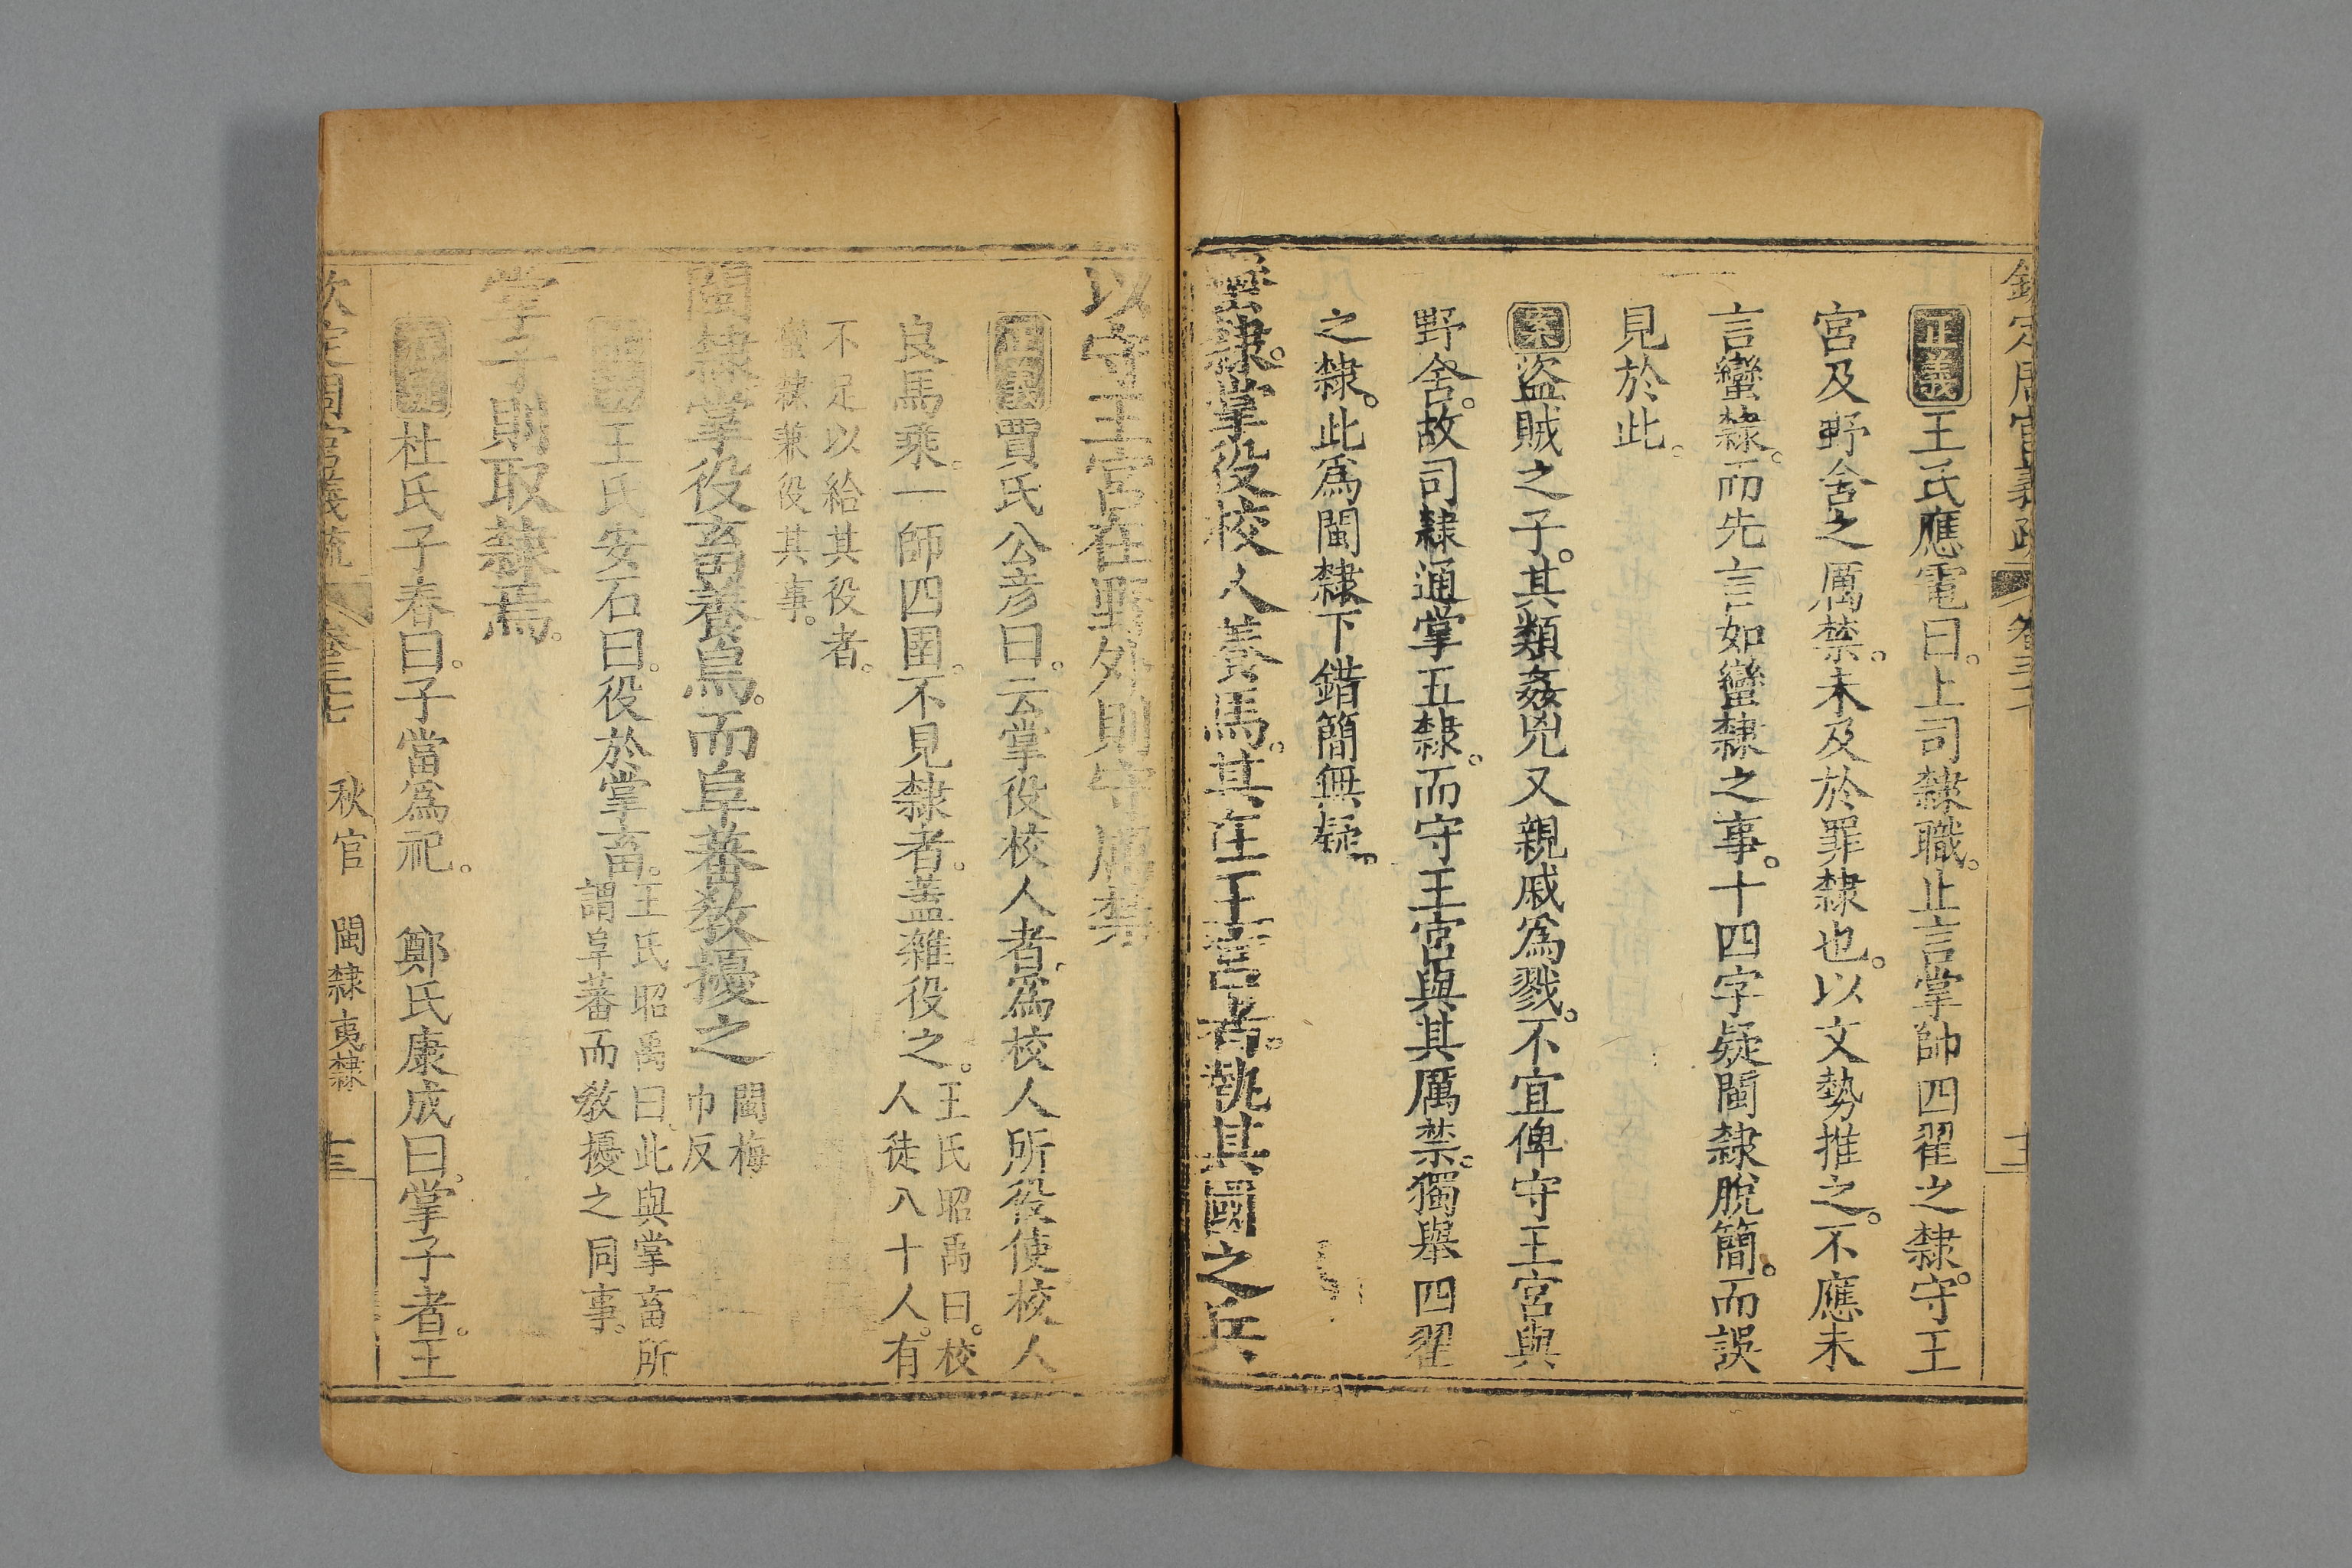 欽定周官義疏 卷三十
正義王氏應電曰。上司隸職。止言掌帥四翟之隸。守王
宮及野舍之厲禁。未及於罪隸也。以文勢推之。不應未
言蠻隸。而先言如蠻隸之事。十四字疑閩隸脫簡。而誤
見於此。
案盜賊之子。其類姦兇又親戚爲戮。不宜俾守王宮與
野舍。故司隸通掌五隸。而守王宮與其厲禁。獨舉四翟
之隸。此爲閩隸下錯簡無疑。
蠻隸。掌役校人養馬。其在王宮者。執其國之兵
以守王宮。在野外則守厲禁
正義賈氏公彥曰。云掌役校人者。爲校人所役使。校人
良馬乘。一師四圉。不見隸者。蓋雜役之。王氏昭禹曰。校
人徒八十人。有
不足以給其役者。
蠻隸兼役其事。
閩隸掌役畜養鳥。而阜蕃敎擾之閩梅
巾反
王氏安石曰。役於掌畜。王氏昭禹曰。此與掌畜所
謂阜蕃而敎擾之同事。
掌子則取隸焉。
杜氏子春曰。子當爲祀。 鄭氏康成曰。掌子者。王
欽定周官義疏 卷三十七 秋官 閩隸 夷隸 十三